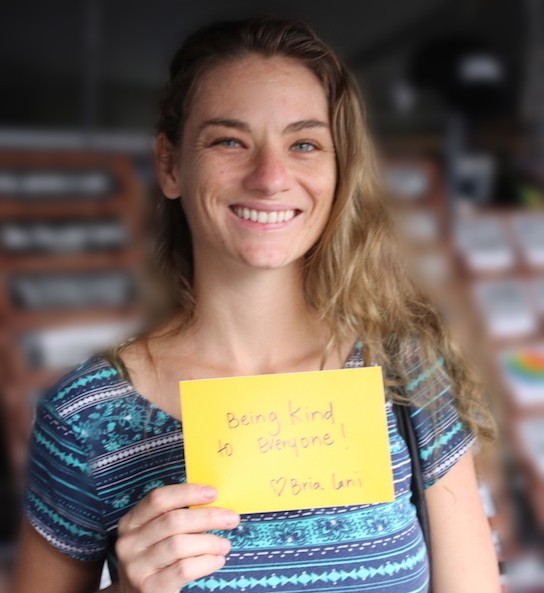 Being Kind
to Everyone!
♡ Bria Lani